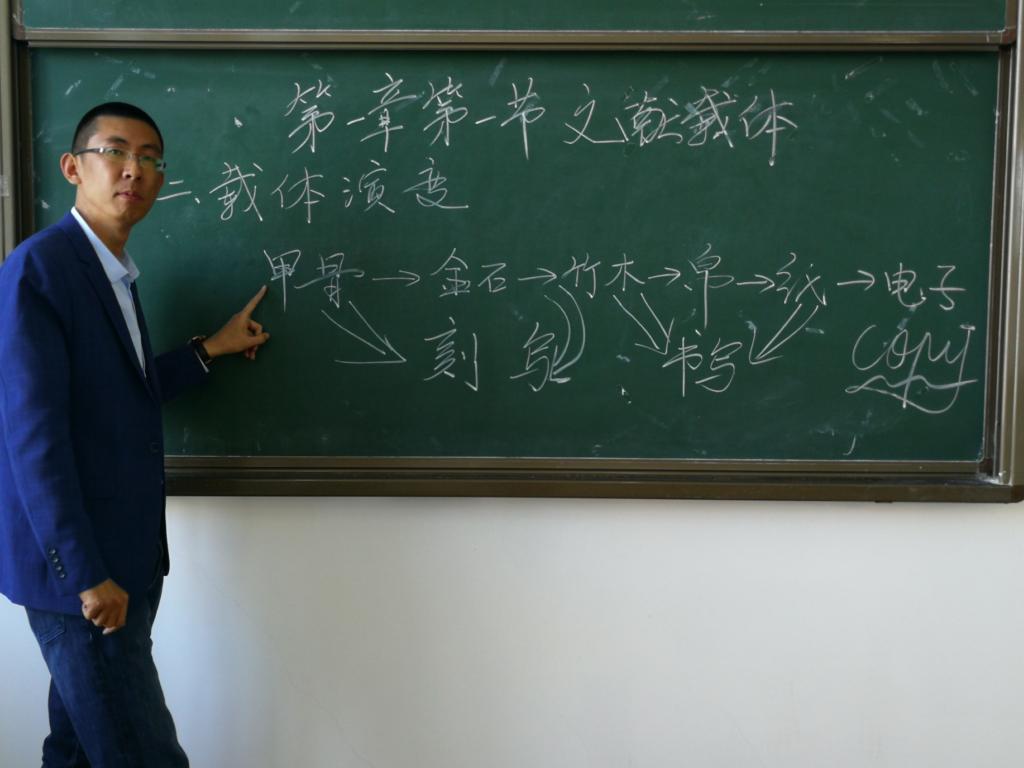 第一章第一节 文献载体
二、载体演变
甲骨→金石→竹木→帛→纸→电子
刻写 书写 copy